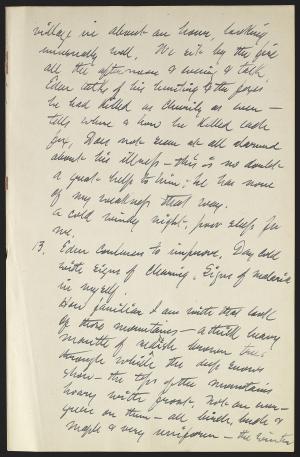 village in about an hour, looking
unusually well. We sit by the fire
all the afternoon & evening & talk,
Eden talks of his hunting & the foxes
he had killed as cheerily as ever —
tells where & how he killed each
fox. Does not seem at all alarmed
about his illness — this is no doubt
a great help to him; he has none
of my weakness that way.
a cold windy night, poor sleep for
me.
13. Eden continues to improve. Day cold
with signs of clearing. Signs of malaria
in myself.
How familiar I am with that look
of those mountains — a thick heavy
mantle of reddish brown trees
through which the deep snows
show — the tops of the mountains
hoary with frost. Not an ever-
green on them — all birch, beech &
maple & very uniform — the winter